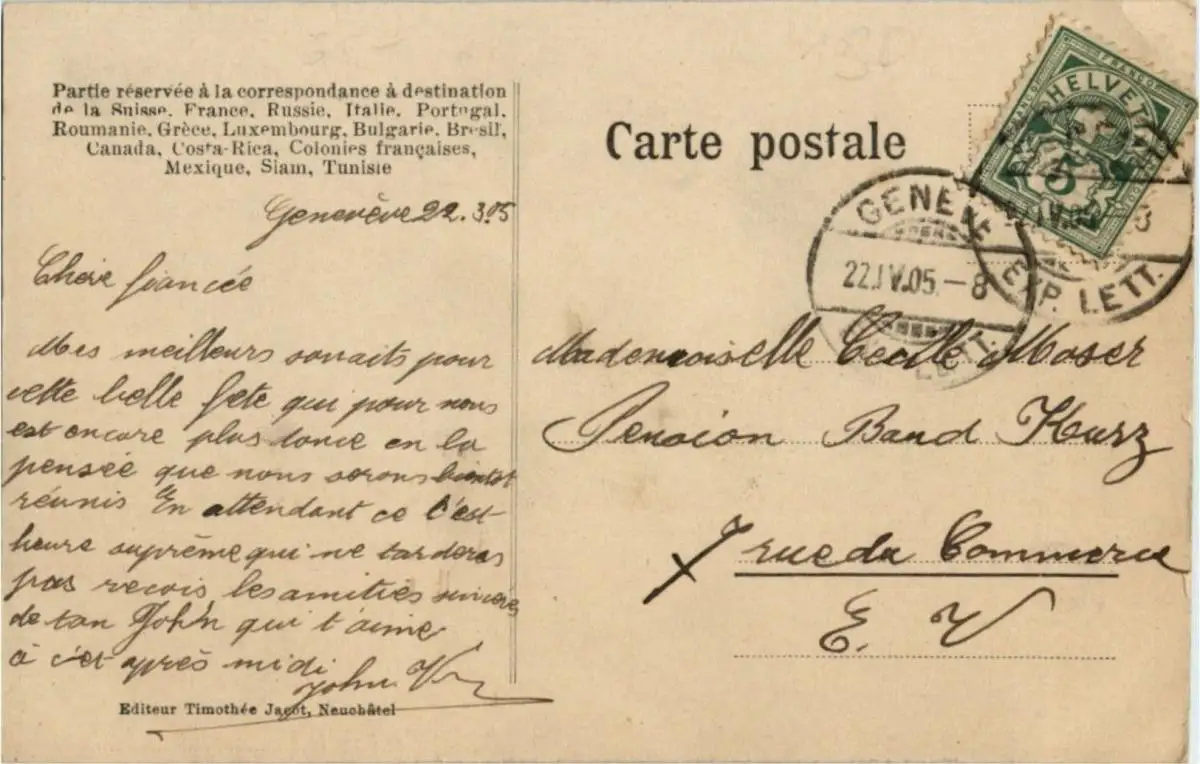 Partie réservée à la correspondance à destination
de la Suisse, France, Russie, Italie, Portugal,
Roumanie, Grèce, Luxembourg, Bulgarie, Bresil,
Canada, Costa-Rica, Colonies françaises,
Mexique, Siam, Tunisie
Genevève 22.3.05
Chère fiancée
Mes meilleurs souaits pour
cette belle fete qui pour nous
est encore plus douce en la
pensée que nous serons bientot
réunis En attendant ce c'est
heure suprème qui ne tarderas
pas recois les amitiés sincères
de ton John qui t'aime
à c'et après midi
John
Editeur Timothée Jacot, Neuchâtel
Carte postale
FRANCO
HELVETIA
5
GENEVE
22.IV.05.-8
EXP. LETT.
Mademoiselle Cecile Moser
Pension Band Kurz
7 rue du Commerce
E. V